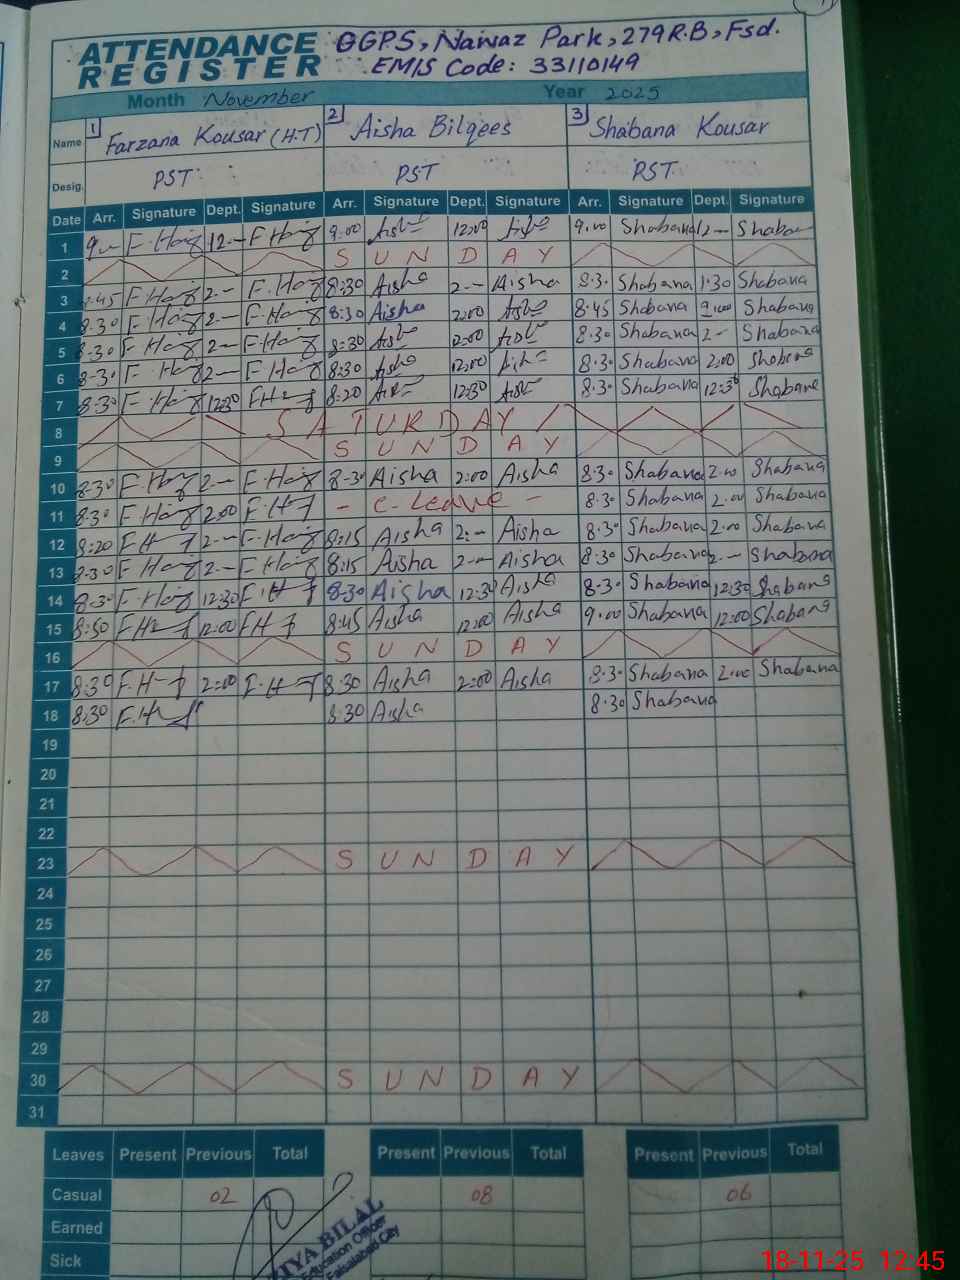 ATTENDANCE REGISTER
GGPS, Nawaz Park, 279 R.B, Fsd.
EMIS Code: 33110149
Month November Year 2025
Name 1 Farzana Kousar (H.T) 2 Aisha Bilqees 3 Shabana Kousar
Desig. PST PST PST
Date Arr. Signature Dept. Signature Arr. Signature Dept. Signature Arr. Signature Dept. Signature
1 9.— 12.— 9:00 12:00 9.00 Shabana 12— Shabana
2 S U N D A Y
3 8:45 2.— 8:30 Aisha 2.— Aisha 8.30 Shabana 1.30 Shabana
4 8.30 2— 8:30 Aisha 2:00 8.45 Shabana Shabana
5 8.30 2— 8:30 2:00 8.30 Shabana 2— Shabana
6 8-30 2— 8:30 12:00 8.30 Shabana 2:00 Shabana
7 8:30 12:30 8:20 12:30 8.30 Shabana 12:30 Shabana
8 S A T U R D A Y
9 S U N D A Y
10 8-30 2.— 8-30 Aisha 2:00 Aisha 8.30 Shabana 2.00 Shabana
11 8:30 2:00 - C. Leave - 8.30 Shabana 2.00 Shabana
12 8:20 2.— 8:15 Aisha 2:— Aisha 8.30 Shabana 2.00 Shabana
13 8:30 2— 8:15 Aisha 2— Aisha 8.30 Shabana 2.— Shabana
14 8:30 12:30 8:30 Aisha 12:30 Aisha 8.30 Shabana 12:30 Shabana
15 8:50 12:00 8:45 Aisha 12:00 Aisha 9.00 Shabana 12:00 Shabana
16 S U N D A Y
17 8:30 F.H 2:00 F.H 8:30 Aisha 2:00 Aisha 8.30 Shabana 2.00 Shabana
18 8:30 F.H 8:30 Aisha 8.30 Shabana
19
20
21
22
23 S U N D A Y
24
25
26
27
28
29
30 S U N D A Y
31
Leaves Present Previous Total Present Previous Total Present Previous Total
Casual 02 08 06
Earned
Sick
BILAL
Education Officer
Faisalabad City
18-11-25 12:45